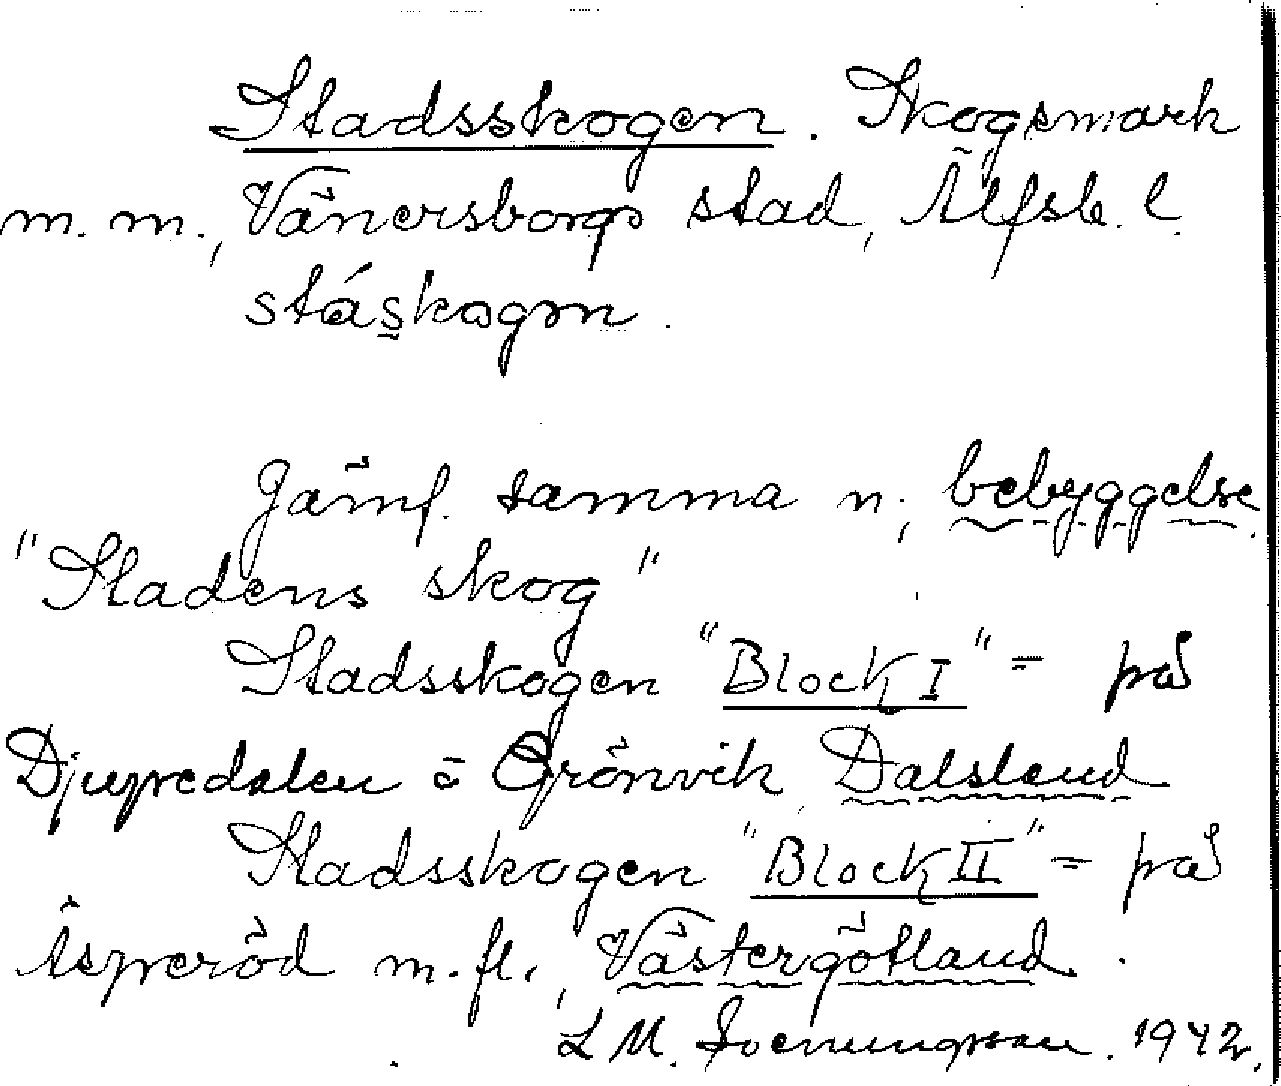 Stadsskogen. Skogsmark
m. m., Vänersborgs stad, Älfsb. l.
ståskogɘn.
Jämf. samma n; bebyggelse.
"Stadens skog"
Stadsskogen "Block I" = på
Djupedalen o Grönvik, Dalsland
Stadsskogen "Block II" = på
Åsperöd m.fl., Västergötland.
L M. 1942.